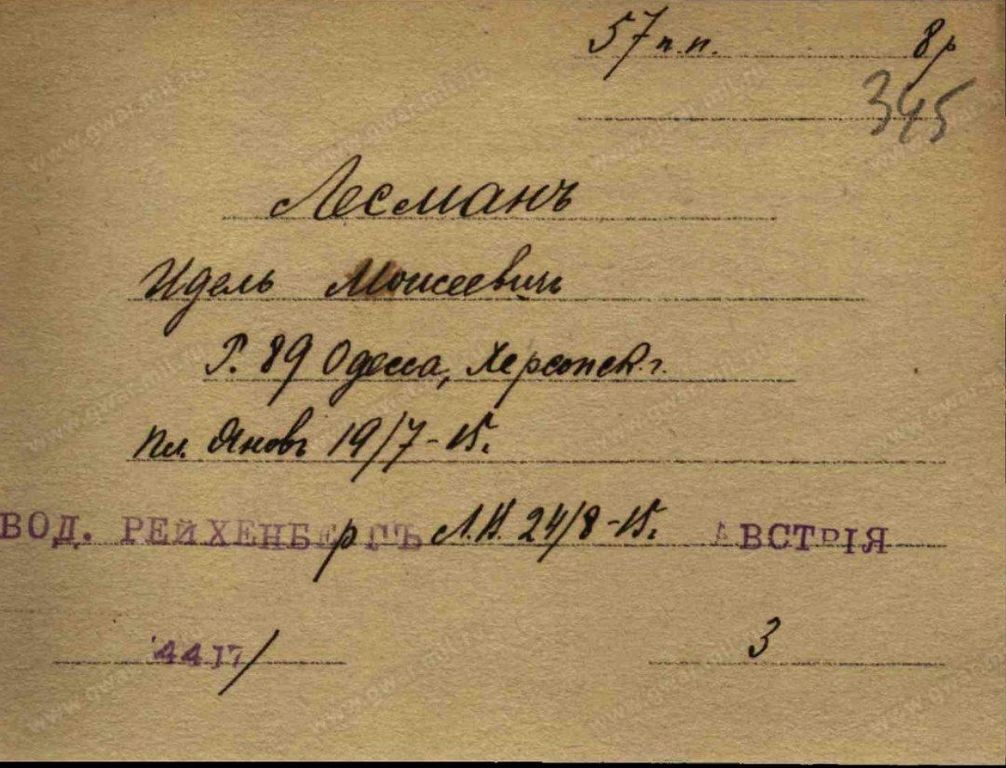 57 п.п. 8 р
345
Лесманъ
Идель Моисеевичъ
Г. 89 Одесса, Херсонск. г.
пл. Яновъ 19/7-15.
ВОД. РЕЙХЕНБЕРГЪ Л.В. 24/8-15. АВСТРІЯ
4417/ 3